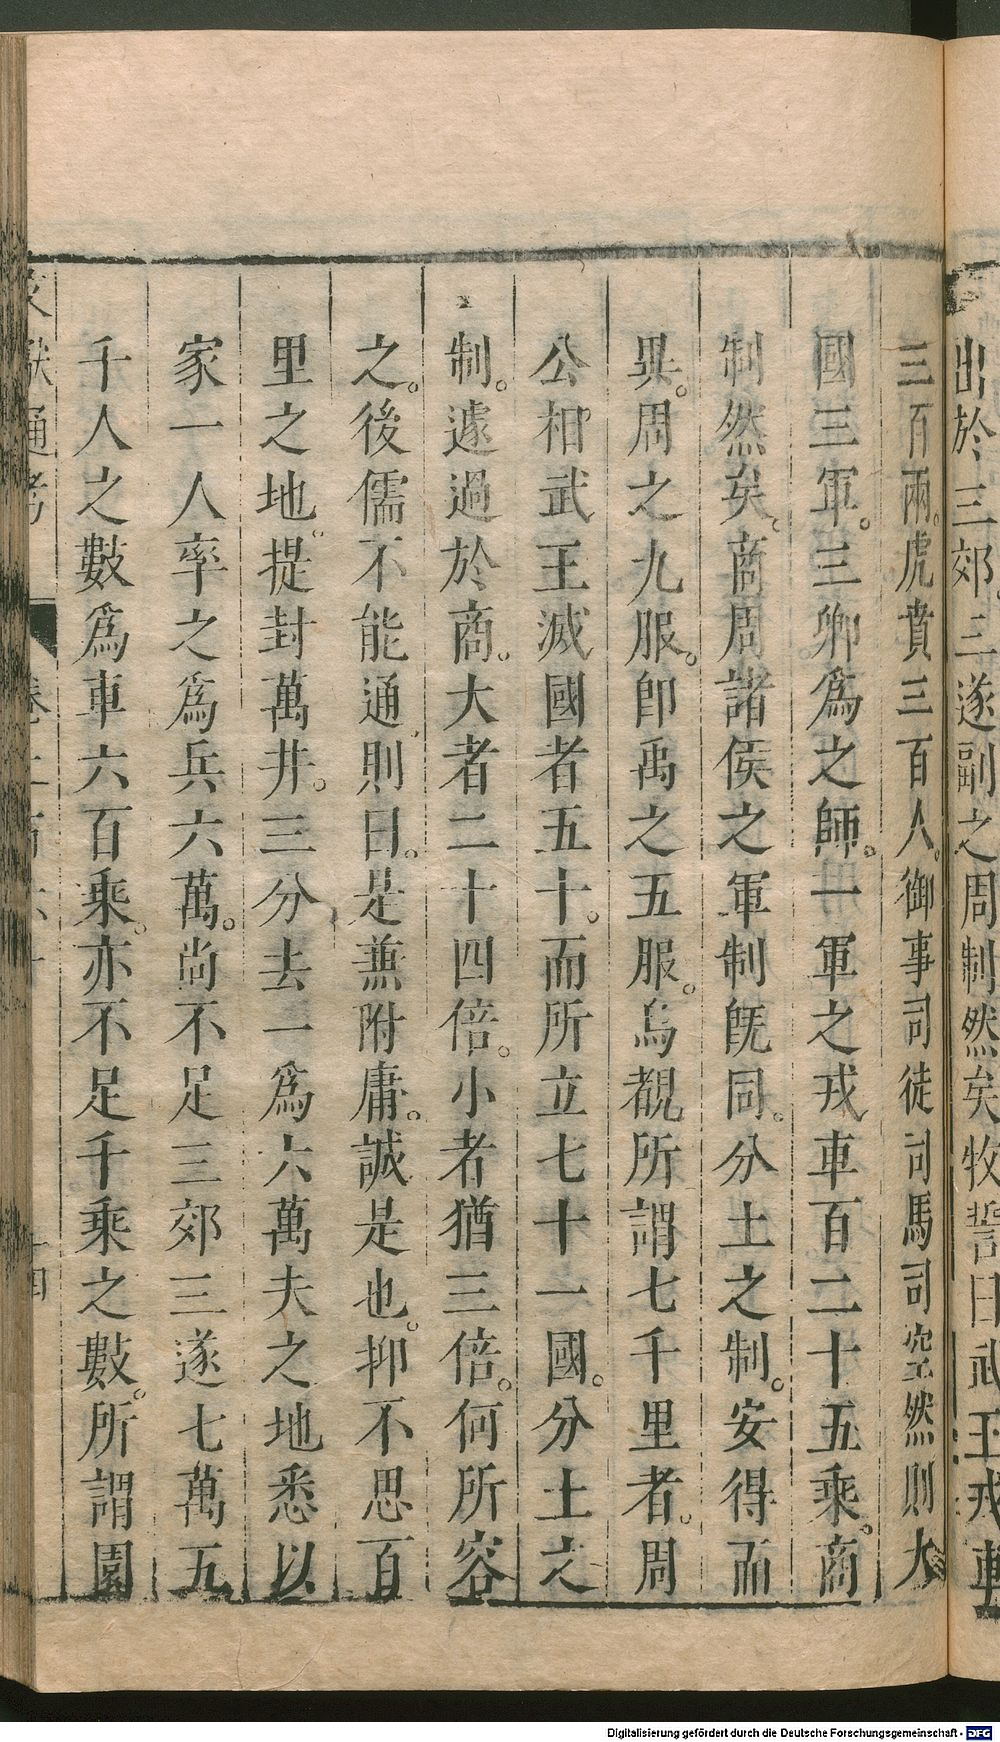 出於三郊三遂副之周制然矣牧誓曰武王戎車
三百兩。虎賁三百人。御事司徒司馬司空然則大
國三軍。三卿爲之師。一軍之戎車百二十五乘。商
制然矣。商周諸侯之軍制既同。分土之制。安得而
異。周之九服。卽禹之五服。烏覩所謂七千里者。周
公相武王滅國者五十。而所立七十一國。分土之
制。遽過於商。大者二十四倍。小者猶三倍。何所容
之。後儒不能通則曰。是兼附庸。誠是也。抑不思百
里之地。提封萬井。三分去一爲六萬夫之地悉以
家一人率之爲兵六萬。尚不足三郊三遂七萬五
千人之數爲車六百乘。亦不足千乘之數。所謂園
文獻通考 卷 十四
Digitalisierung gefördert durch die Deutsche Forschungsgemeinschaft - DFG